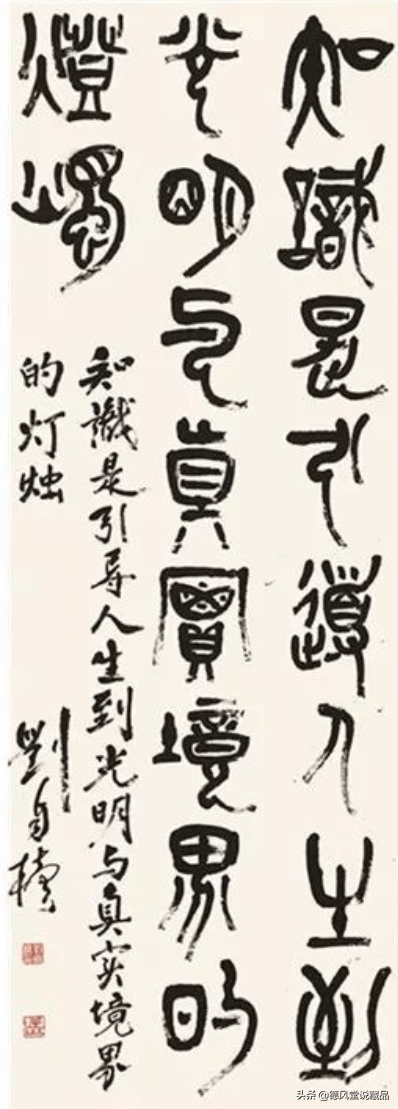 知識是引導人生到
光明与真實境界的
燈燭
知識是引导人生到光明与真实境界
的灯烛
劉自櫝
头条 @德风堂说藏品